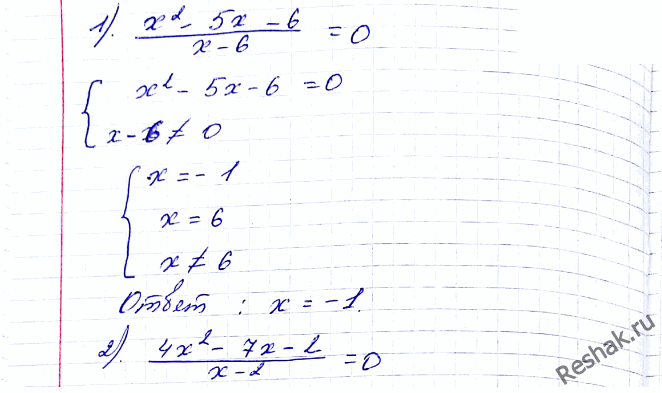 1). (x² - 5x - 6)/(x - 6) = 0
{ x² - 5x - 6 = 0
x - 6 ≠ 0
{ x = - 1
x = 6
x ≠ 6
Ответ : x = -1.
2). (4x² - 7x - 2)/(x - 2) = 0
Reshak.ru